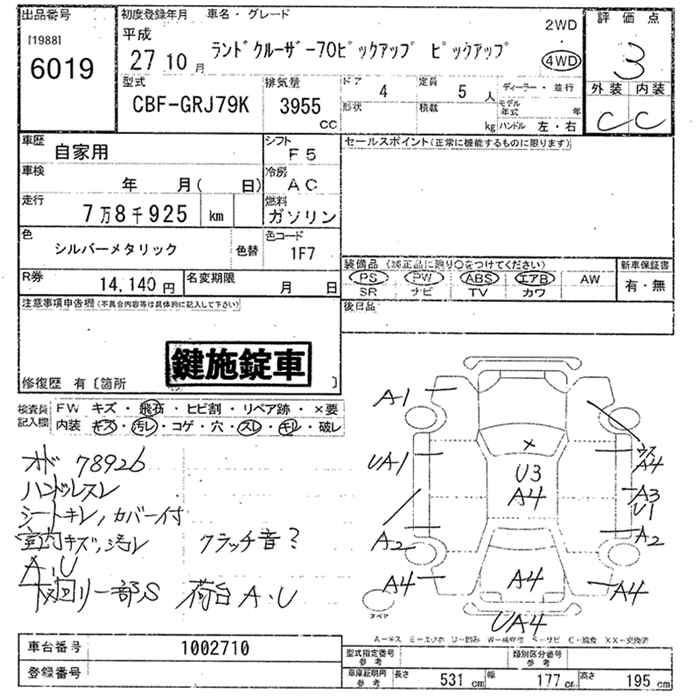 出品番号
[1988]
6019
初度登録年月 車名・グレード
平成
27 10 月
ランドクルーザー70ピックアップ ピックアップ
2WD
4WD
評価点
3
外装 内装
C C
型式
CBF-GRJ79K
排気量
3955
CC
ドア
4
定員
5 人
形状
積載
kg
ディーラー・並行
モデル年式 年
ハンドル 左・右
車歴
自家用
シフト
F5
車検
年 月( 日)
冷房
AC
走行
7万8千925 km
燃料
ガソリン
色
シルバーメタリック
色替
色コード
1F7
R券
14,140円
名変期限
月 日
セールスポイント(正常に機能するものに限ります)
装備品 (純正品に限り○をつけてください)
PS PW ABS エアB AW
SR ナビ TV カワ
新車保証書
有・無
後日品
注意事項申告欄(不具合内容等は具体的に記入して下さい)
鍵施錠車
修復歴 有〔箇所 〕
検査員記入欄
FW キズ・飛石・ヒビ割・リペア跡・×要
内装 キズ・汚レ・コゲ・穴・スレ・キレ・破レ
オド 78926
ハンドルスレ
シートキレ,カバー付
室内キズ,汚レ クラッチ音?
A,U
下回リ一部S 荷台A・U
A1
UA1
A2
A4
×
U3
A4
A4
UA4
ウス
A4
A3
U1
A2
A4
スペア
A-キス E-エクボ U-凹み W-補修有 S-サビ C-腐食 XX-交換済
車台番号
1002710
登録番号
型式指定番号
参考
類別区分番号
参考
車庫証明用
参考
長さ 531 cm 幅 177 cm 高さ 195 cm